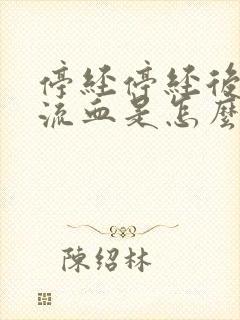 停経停経後
流血是怎麼
陳紹林